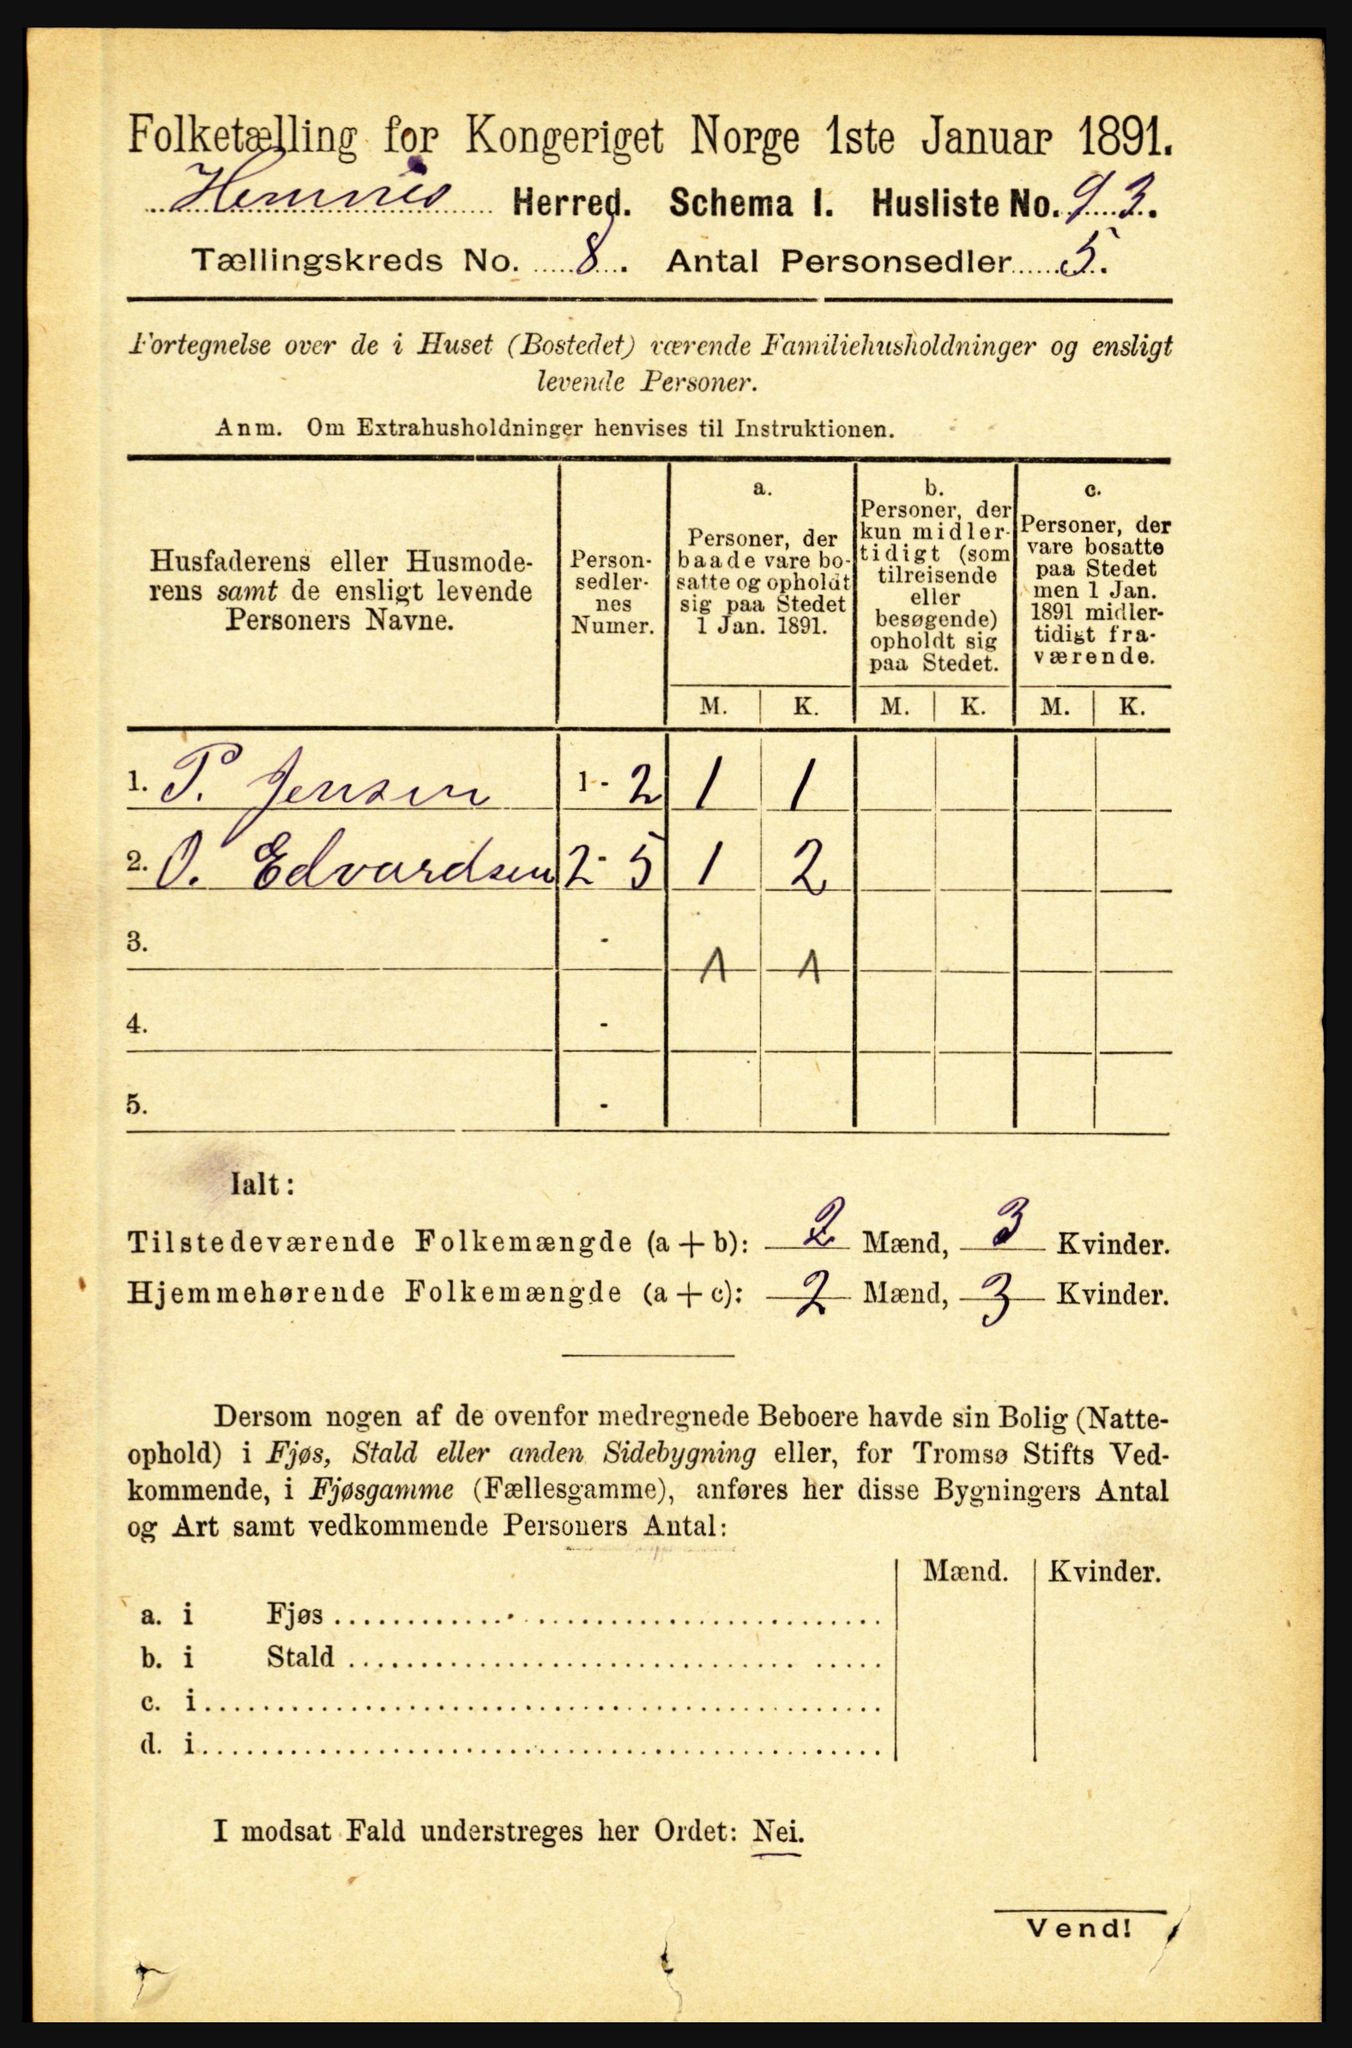 Folketælling for Kongeriget Norge 1ste Januar 1891.
Hemnes Herred. Schema I. Husliste No. 93.
Tællingskreds No. 8. Antal Personsedler 5.
Fortegnelse over de i Huset (Bostedet) værende Familiehusholdninger og ensligt
levende Personer.
Anm. Om Extrahusholdninger henvises til Instruktionen.
Husfaderens eller Husmode-
rens samt de ensligt levende
Personers Navne.
Person-
sedler-
nes
Numer.
a.
Personer, der
baade vare bo-
satte og opholdt
sig paa Stedet
1 Jan. 1891.
b.
Personer, der
kun midler-
tidigt (som
tilreisende
eller
besøgende)
opholdt sig
paa Stedet.
c.
Personer, der
vare bosatte
paa Stedet
men 1 Jan.
1891 midler-
tidigt fra-
værende.
M. K. M. K. M. K.
1. P. Jensen 1 - 2 1 1
2. O. Edvardsen 2 - 5 1 2
3. - 1 1
4. -
5. -
Ialt:
Tilstedeværende Folkemængde (a + b): 2 Mænd, 3 Kvinder.
Hjemmehørende Folkemængde (a + c): 2 Mænd, 3 Kvinder.
Dersom nogen af de ovenfor medregnede Beboere havde sin Bolig (Natte-
ophold) i Fjøs, Stald eller anden Sidebygning eller, for Tromsø Stifts Ved-
kommende, i Fjøsgamme (Fællesgamme), anføres her disse Bygningers Antal
og Art samt vedkommende Personers Antal:
Mænd. Kvinder.
a. i Fjøs
b. i Stald
c. i
d. i
I modsat Fald understreges her Ordet: Nei.
Vend!